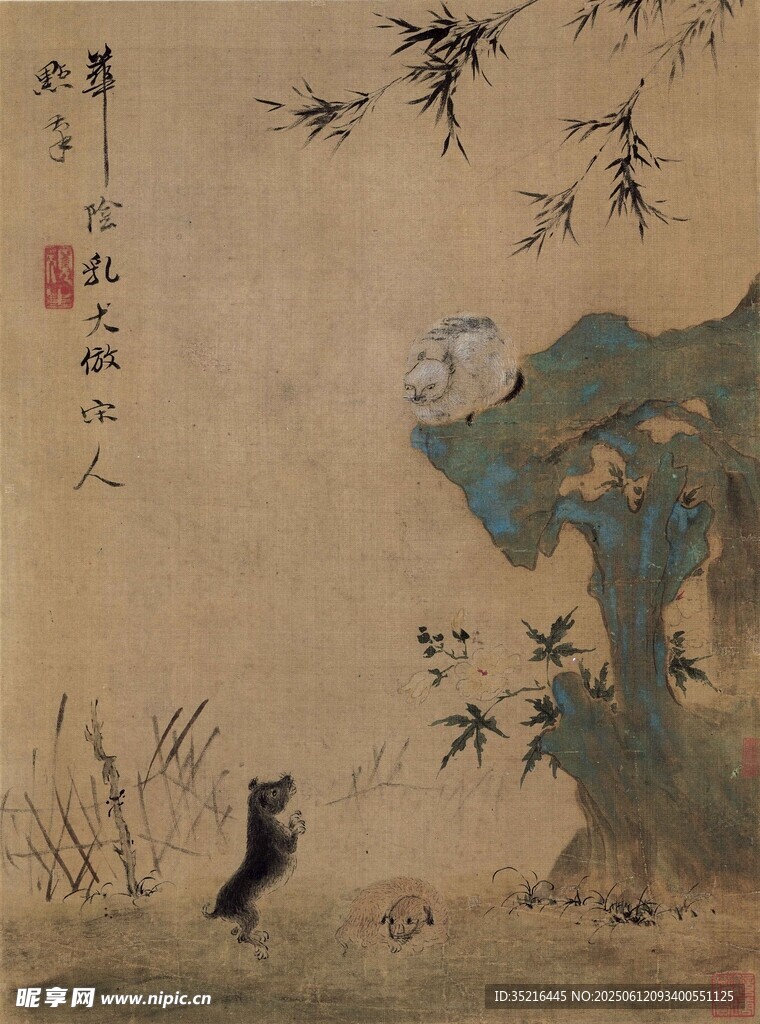 華陰乳犬倣宋人
點筆
昵享网 www.nipic.cn
ID:35216445 NO:20250612093400551125